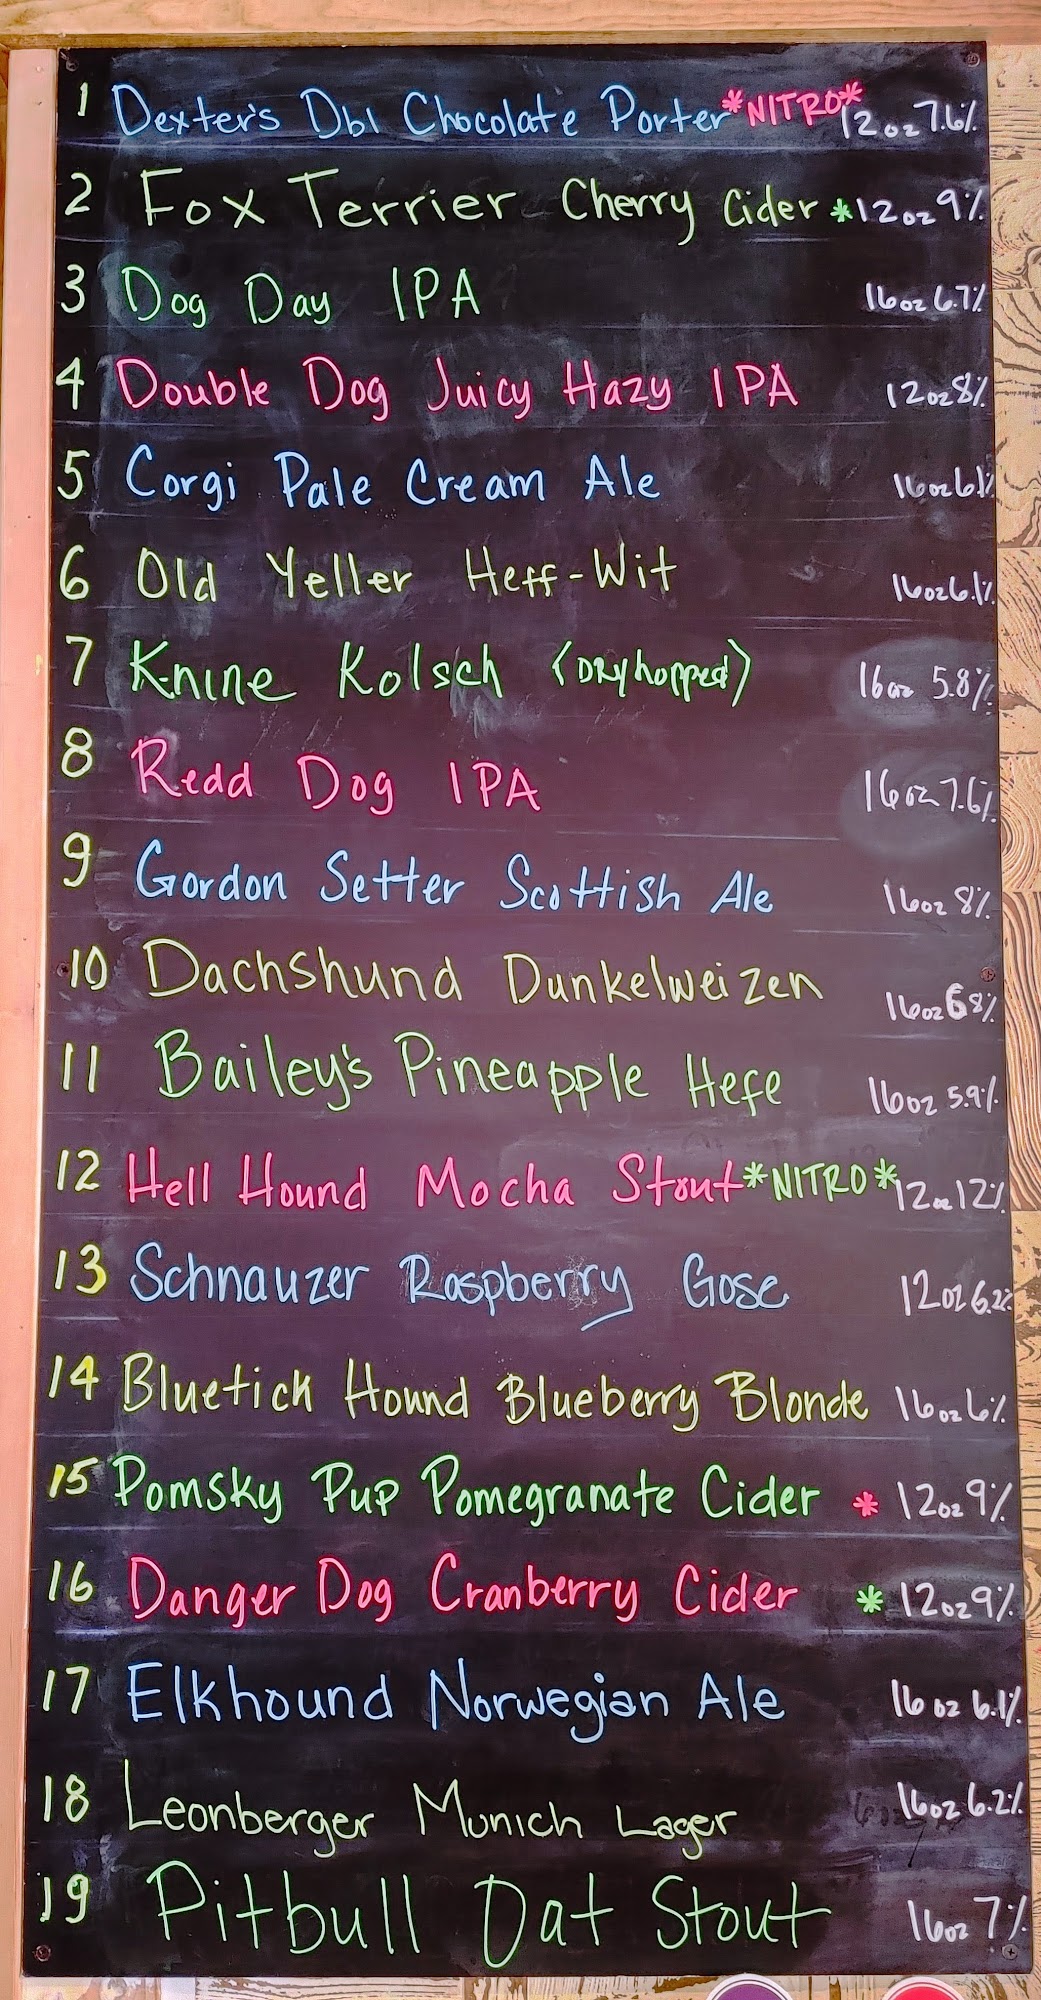 1 Dexter's Dbl Chocolate Porter *NITRO* 12oz 7.6%
2 Fox Terrier Cherry Cider * 12oz 9%
3 Dog Day IPA 16oz 6.7%
4 Double Dog Juicy Hazy IPA 12oz 8%
5 Corgi Pale Cream Ale 16oz 6.1%
6 Old Yeller Heff-Wit 16oz 6.1%
7 K-nine Kolsch (DRYhopped) 16oz 5.8%
8 Redd Dog IPA 16oz 7.6%
9 Gordon Setter Scottish Ale 16oz 8%
10 Dachshund Dunkelweizen 16oz 6.8%
11 Bailey's Pineapple Hefe 16oz 5.9%
12 Hell Hound Mocha Stout *NITRO* 12oz 12%
13 Schnauzer Raspberry Gose 12oz 6.2%
14 Bluetick Hound Blueberry Blonde 16oz 6%
15 Pomsky Pup Pomegranate Cider * 12oz 9%
16 Danger Dog Cranberry Cider * 12oz 9%
17 Elkhound Norwegian Ale 16oz 6.1%
18 Leonberger Munich Lager 16oz 6.2%
19 Pitbull Oat Stout 16oz 7%